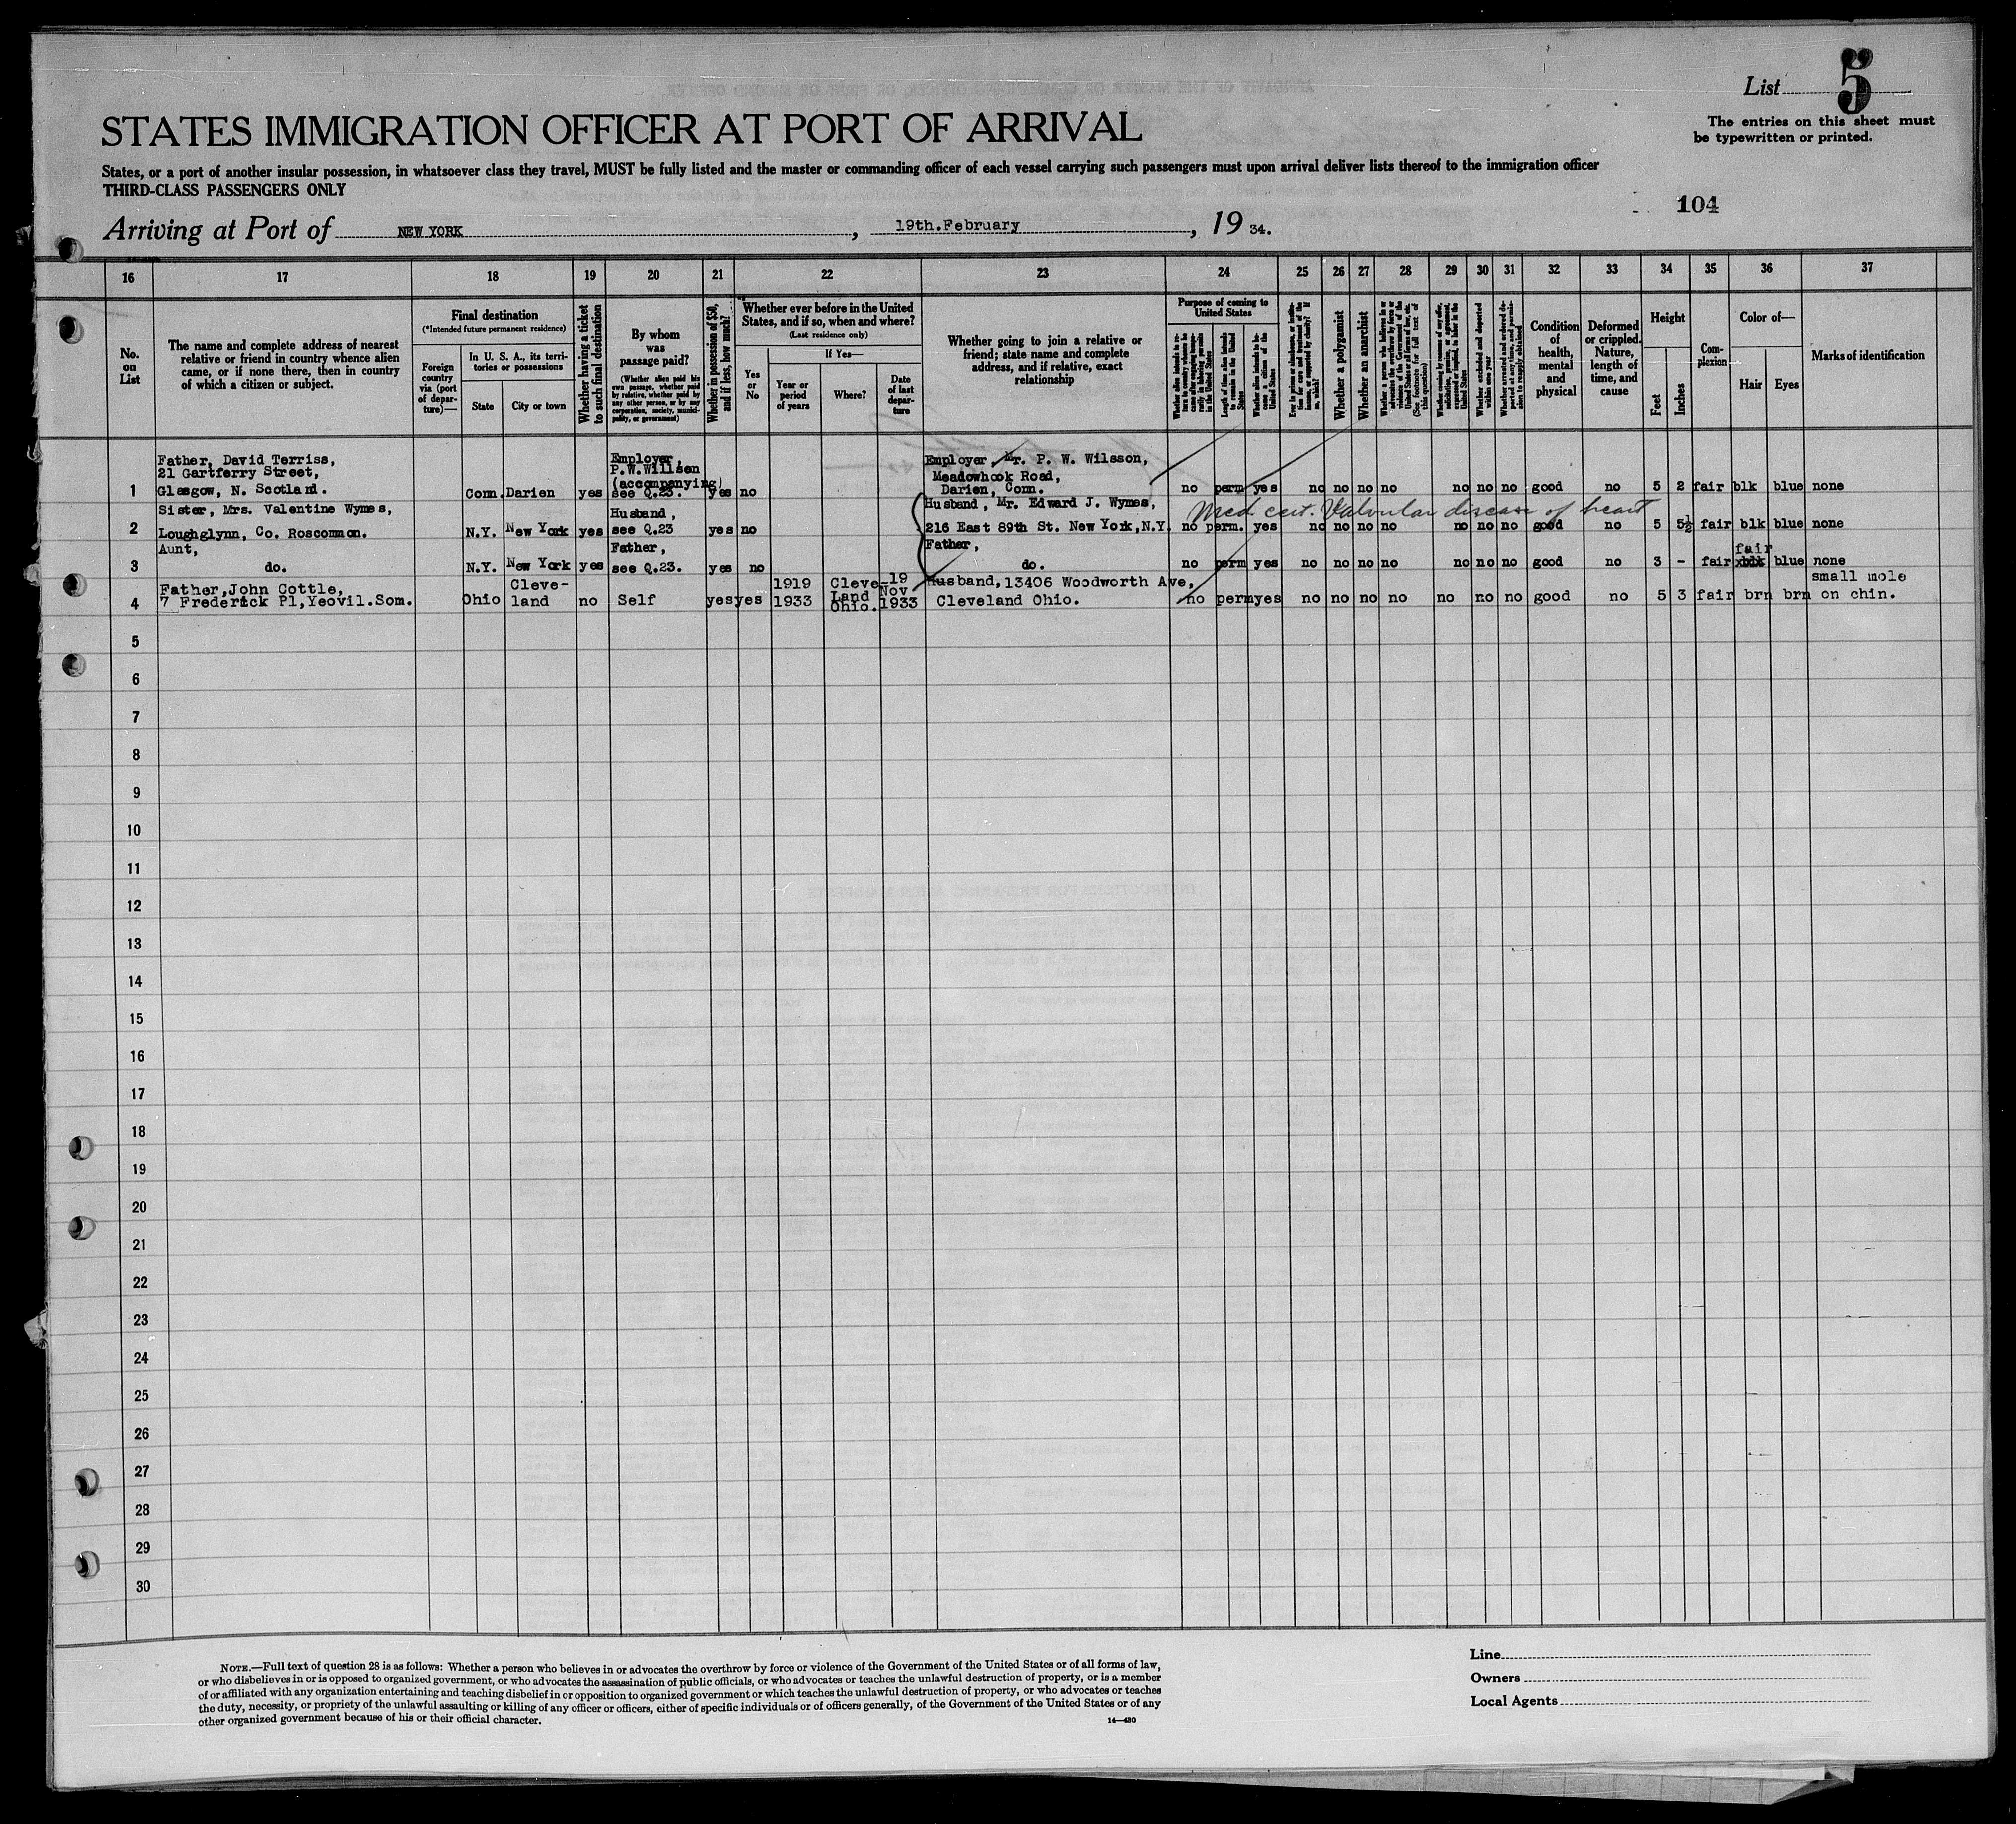 List 5
The entries on this sheet must
be typewritten or printed.
STATES IMMIGRATION OFFICER AT PORT OF ARRIVAL
States, or a port of another insular possession, in whatsoever class they travel, MUST be fully listed and the master or commanding officer of each vessel carrying such passengers must upon arrival deliver lists thereof to the immigration officer
THIRD-CLASS PASSENGERS ONLY
104
Arriving at Port of NEW YORK, 19th.February, 19 34.
16 17 18 19 20 21 22 23 24 25 26 27 28 29 30 31 32 33 34 35 36 37
No. on List
The name and complete address of nearest relative or friend in country whence alien came, or if none there, then in country of which a citizen or subject.
Final destination
(*Intended future permanent residence)
Foreign country via (port of departure)—
In U. S. A., its territories or possessions
State
City or town
Whether having a ticket to such final destination
By whom was passage paid?
(Whether alien paid his own passage, whether paid by relative, whether paid by any other person, or by any corporation, society, municipality, or government)
Whether in possession of $50, and if less, how much?
Whether ever before in the United States, and if so, when and where?
(Last residence only)
Yes or No
If Yes—
Year or period of years
Where?
Date of last departure
Whether going to join a relative or friend; state name and complete address, and if relative, exact relationship
Purpose of coming to United States
Length of time alien intends to remain in the United States
Whether alien intends to become a citizen of the United States
Whether a polygamist
Whether an anarchist
Whether excluded and deported within one year
Condition of health, mental and physical
Deformed or crippled. Nature, length of time, and cause
Height
Feet
Inches
Complexion
Color of—
Hair
Eyes
Marks of identification
Father, David Terriss,
21 Gartferry Street,
1 Glasgow, N. Scotland. Conn. Darien yes Employer, P.W.Willsen (accompanying) see Q.23. yes no Employer, Mr. P. W. Wilsson, Meadowhook Road, Darien, Conn. no perm yes no no no no no no no good no 5 2 fair blk blue none
Med cert. Valvular disease of heart
Sister, Mrs. Valentine Wymes,
2 Loughglynn, Co. Roscommon. N.Y. New York yes Husband, see Q.23 yes no Husband, Mr. Edward J. Wymes, 216 East 89th St. New York, N.Y. no perm. yes no no no no no no no good no 5 5½ fair blk blue none
Aunt,
3 do. N.Y. New York yes Father, see Q.23. yes no Father, do. no perm yes no no no no no no no good no 3 - fair fair blue none
Father, John Cottle,
4 7 Frederick Pl, Yeovil. Som. Ohio Cleve-land no Self yes yes 1919 1933 Cleve-Land Ohio. 19 Nov 1933 Husband, 13406 Woodworth Ave, Cleveland Ohio. no perm yes no no no no no no no good no 5 3 fair brn brn small mole on chin.
5
6
7
8
9
10
11
12
13
14
15
16
17
18
19
20
21
22
23
24
25
26
27
28
29
30
NOTE.—Full text of question 28 is as follows: Whether a person who believes in or advocates the overthrow by force or violence of the Government of the United States or of all forms of law,
or who disbelieves in or is opposed to organized government, or who advocates the assassination of public officials, or who advocates or teaches the unlawful destruction of property, or is a member
of or affiliated with any organization entertaining and teaching disbelief in or opposition to organized government or which teaches the unlawful destruction of property, or who advocates or teaches
the duty, necessity, or propriety of the unlawful assaulting or killing of any officer or officers, either of specific individuals or of officers generally, of the Government of the United States or of any
other organized government because of his or their official character.
14—430
Line
Owners
Local Agents